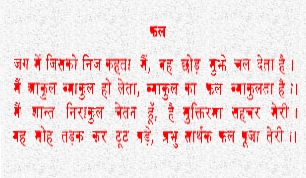 फल
जग में जिसको निज कहता मैं, वह छोड़ मुझे चल देता है ।
मैं आकुल व्याकुल हो लेता, व्याकुल का फल व्याकुलता है ।।
मैं शान्त निराकुल चेतन हूँ, है मुक्तिरमा सहचर मेरी ।
यह मोह तड़क कर टूट पड़े, प्रभु सार्थक फल पूजा तेरी ।।